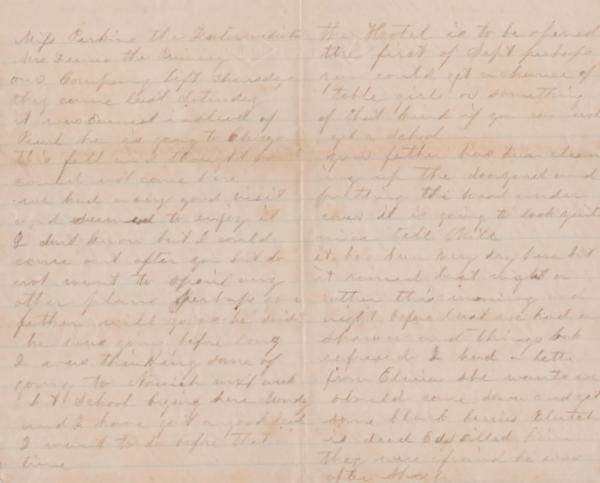 Miss Perkins the Intermediate
Mrs the Primary
our Company left Thursday
they came last Saturday
it was instead of
Pearl he is going to Chicago
this fall and thought
could not come here
we had a very good visit
and seemed to enjoy it
I dont know but I could
come out after you but do
not want to spoil any
other plans perhaps
father will go as he said
he was going before long
I was thinking some of
going to next week
School begins here Monday
and I have got a good deal
I want to do before that
time
the Hotel is to be opened
the first of Sept perhaps
you could get a chance of
table girl or something
of that kind if you can not
get a school
your father has been clean
ing up the dooryard and
putting the wood under
cover it is going to look quite
nice tell Will
it has been very dry here but
it rained last night or
rather this morning and
night before last we had a
shower and things look
refresed I had a letter
from she wants me
should come down and get
some black berries
is dead Ed killed him
they were afraid he was